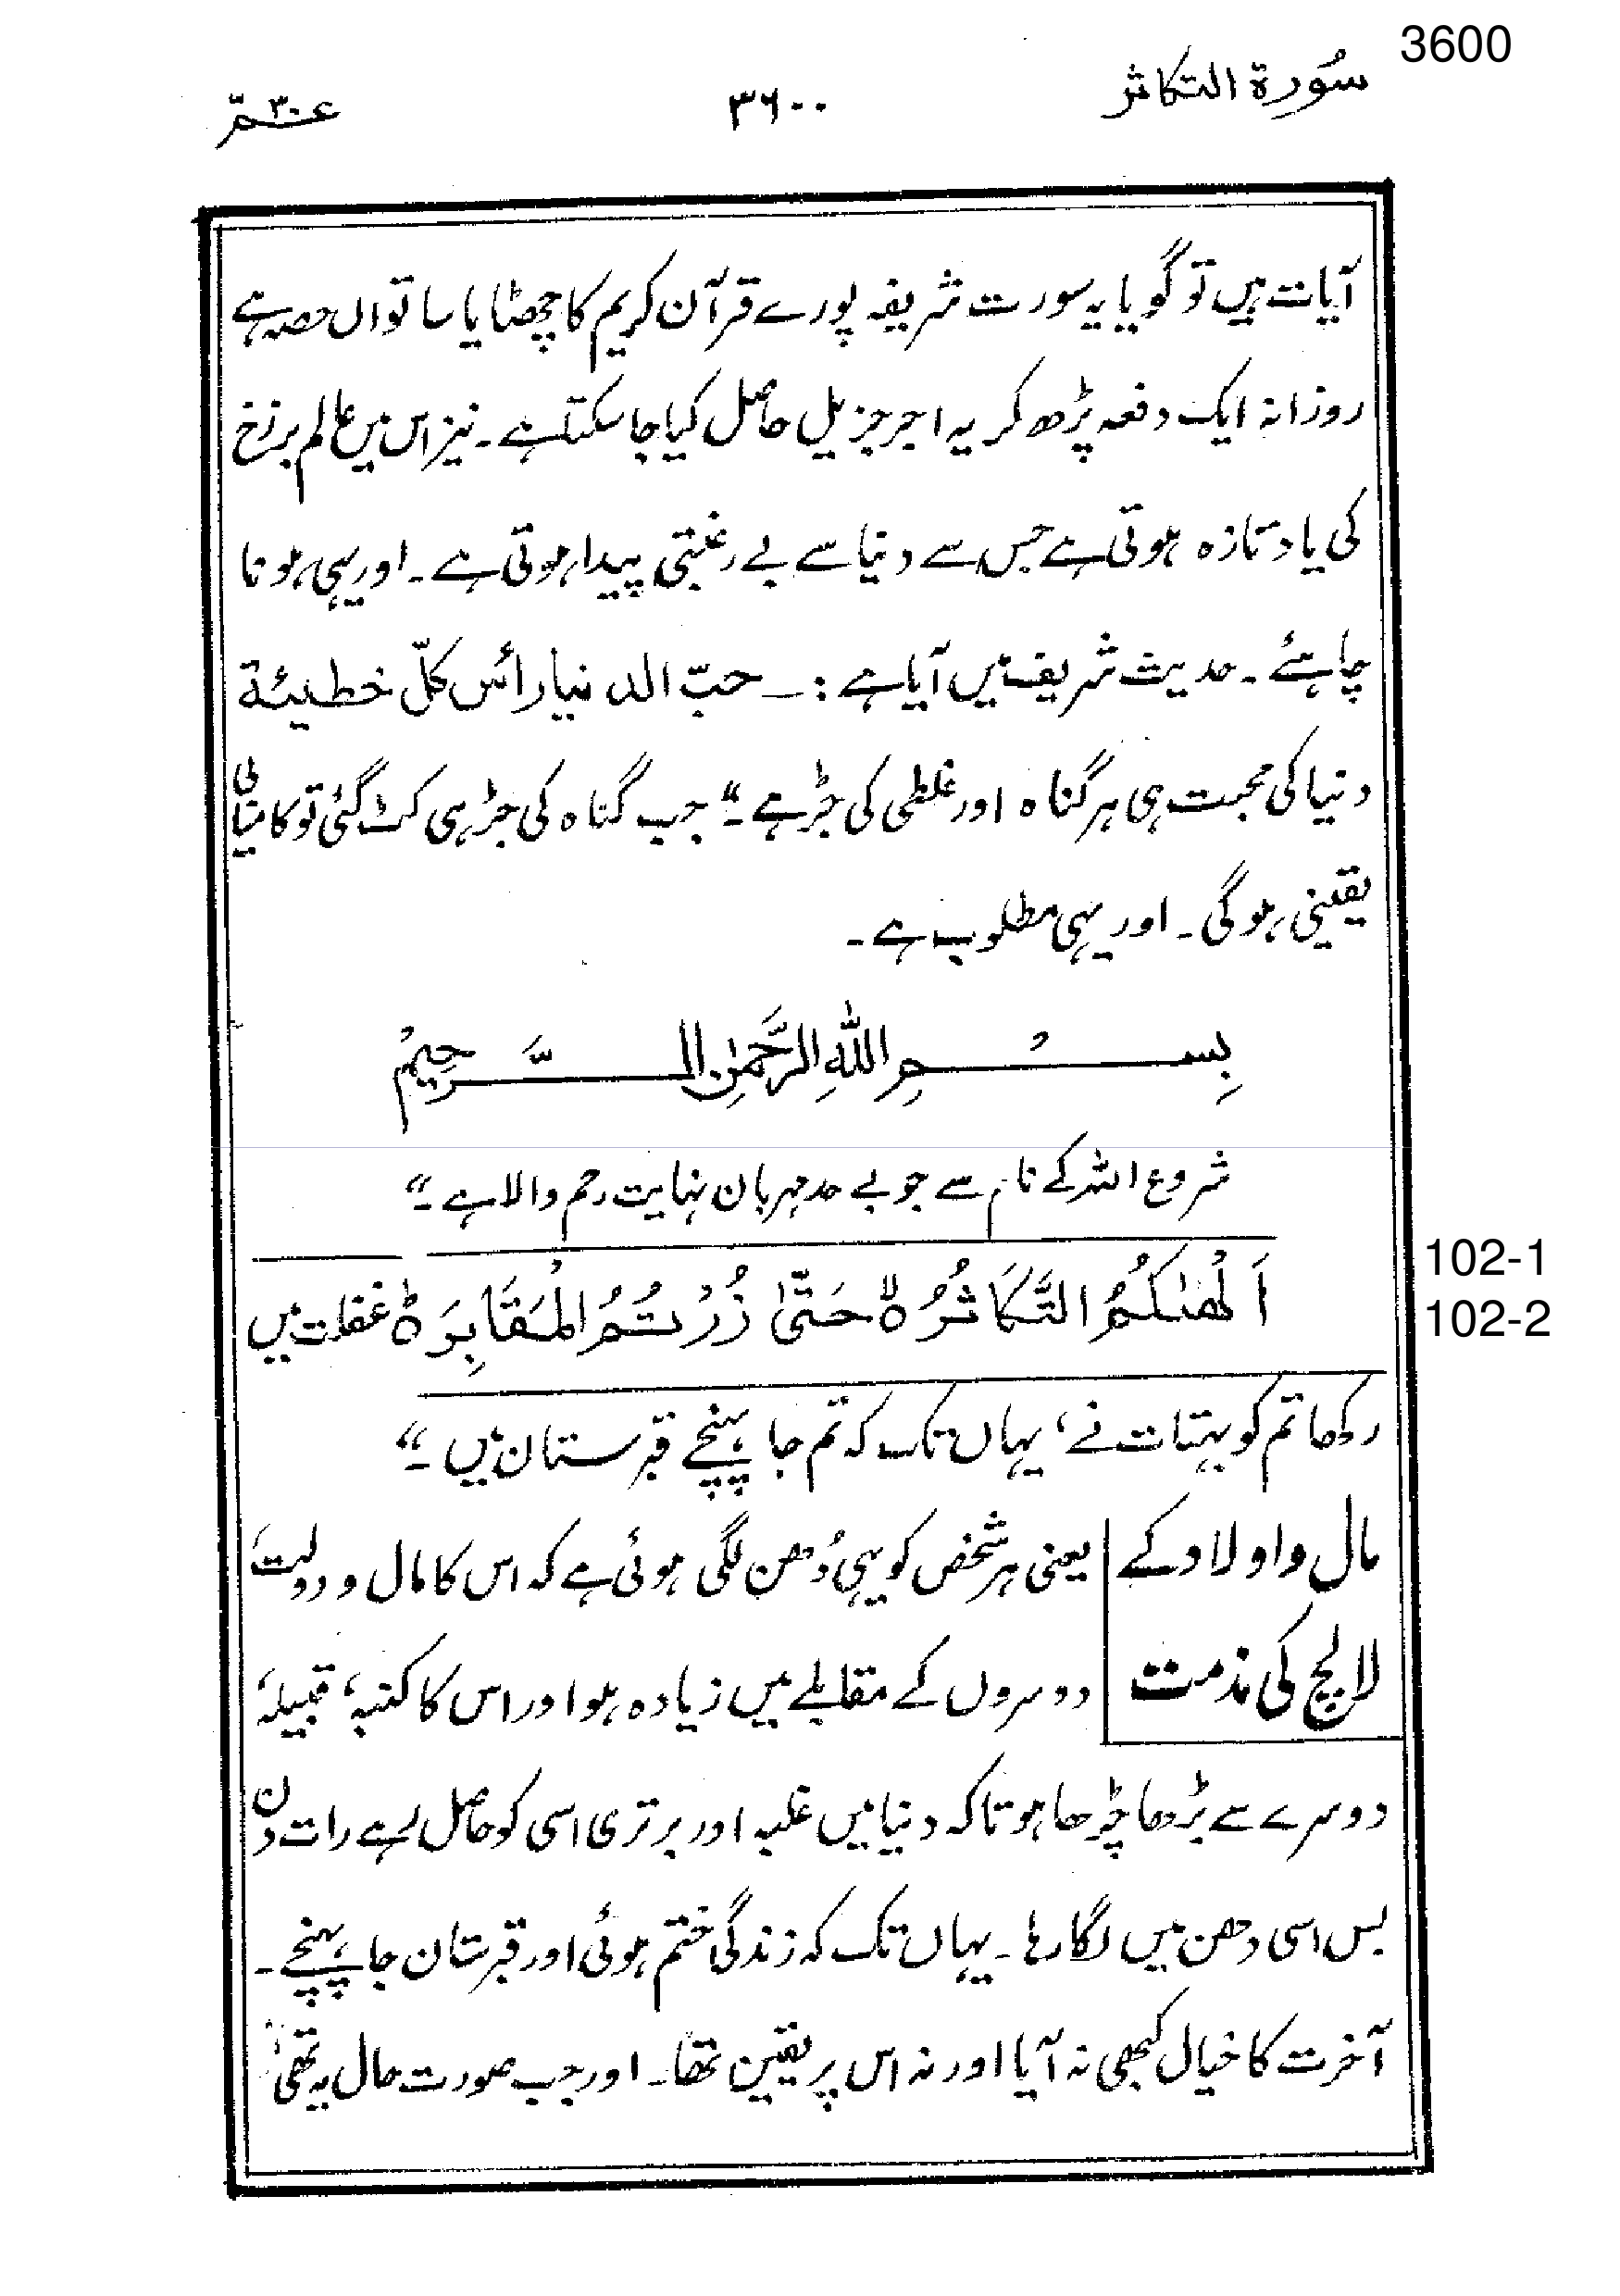 3600
سُورۃ التکاثر
۳۶۰۰
عمّ ۳۰
آیات ہیں تو گویا یہ سورت شریفہ پورے قرآن کریم کا چھٹا یا ساتواں حصہ ہے
روزانہ ایک دفعہ پڑھ کر یہ اجر جزیل حاصل کیا جا سکتا ہے۔ نیز اس میں عالم برزخ
کی یاد تازہ ہوتی ہے جس سے دنیا سے بے رغبتی پیدا ہوتی ہے۔ اور یہی ہونا
چاہئے۔ حدیث شریف میں آیا ہے :۔ حبّ الدنیا رأس کلّ خطیئة
دنیا کی محبت ہی ہر گناہ اور غلطی کی جڑ ہے۔“ جب گناہ کی جڑ ہی کٹ گئی تو کامیابی
یقینی ہوگی۔ اور یہی مطلوب ہے۔
بِسْمِ اللّٰهِ الرَّحْمٰنِ الرَّحِيْمُ
شروع اللہ کے نام سے جو بے حد مہربان نہایت رحم والا ہے۔“
اَلْهٰىكُمُ التَّكَاثُرُ ۙ حَتّٰى زُرْتُمُ الْمَقَابِرَ ؕ غفلت میں
102-1
102-2
رکھا تم کو بہتات نے، یہاں تک کہ تم جا پہنچے قبرستان میں۔“
مال و اولاد کے
لالچ کی مذمت
یعنی ہر شخص کو یہی دُھن لگی ہوئی ہے کہ اس کا مال و دولت
دوسروں کے مقابلے میں زیادہ ہو اور اس کا کنبہ، قبیلہ،
دوسرے سے بڑھا چڑھا ہو تاکہ دنیا میں غلبہ اور برتری اسی کو حاصل رہے رات دن
بس اسی دھن میں لگا رہا۔ یہاں تک کہ زندگی ختم ہوئی اور قبرستان جا پہنچے۔
آخرت کا خیال کبھی نہ آیا اور نہ اس پر یقین تھا۔ اور جب صورت حال یہ تھی